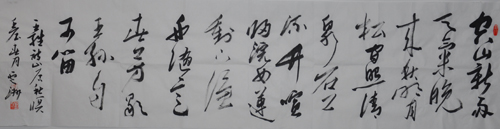 空山新雨
后天氣晚
来秋明月
松间照清
泉石上
流竹喧
归浣女莲
动下渔
舟随意
春芳歇
王孙自
可留
王维诗山居秋暝